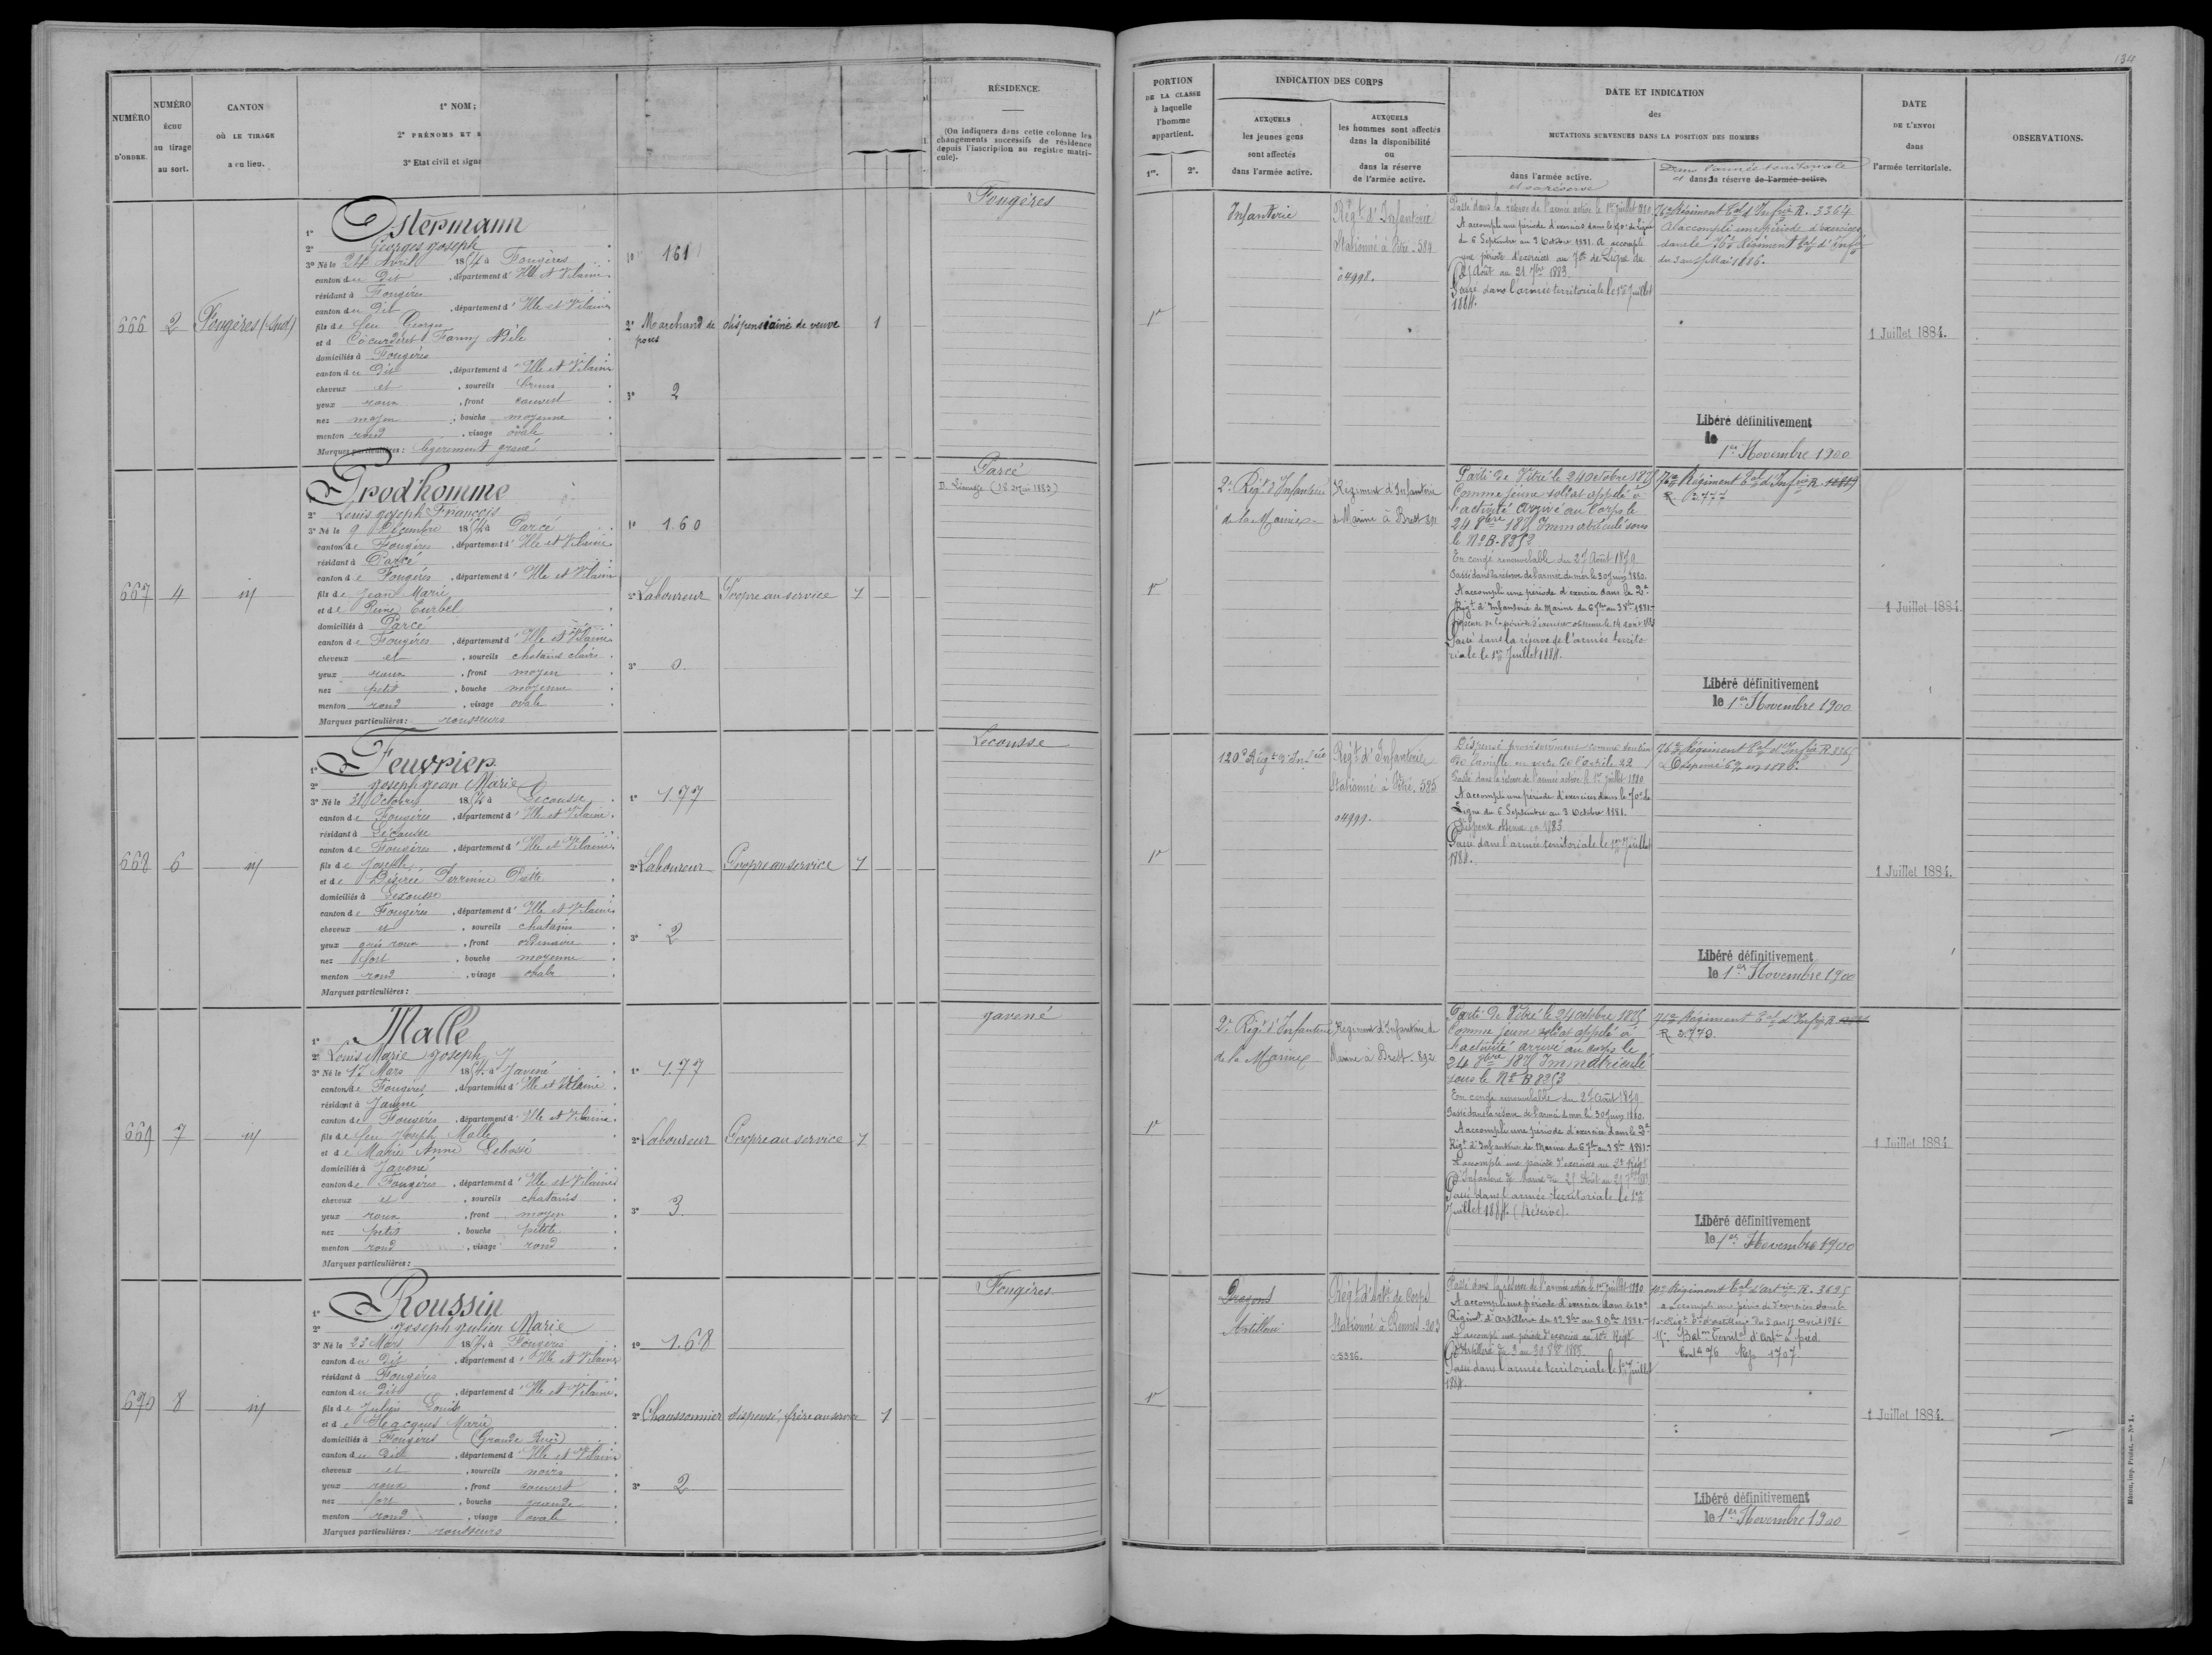 134
NUMÉRO
D'ORDRE.
NUMÉRO
ÉCHU
au tirage
au sort.
CANTON
OÙ LE TIRAGE
a eu lieu.
1° NOM;
2° PRÉNOMS ET
3° Etat civil et signa
RÉSIDENCE.
(On indiquera dans cette colonne les
changements successifs de résidence
depuis l'inscription au registre matri-
cule).
PORTION
DE LA CLASSE
à laquelle
l'homme
appartient.
1re. 2e.
INDICATION DES CORPS
AUXQUELS
les jeunes gens
sont affectés
dans l'armée active.
AUXQUELS
les hommes sont affectés
dans la disponibilité
ou
dans la réserve
de l'armée active.
DATE ET INDICATION
des
MUTATIONS SURVENUES DANS LA POSITION DES HOMMES
dans l'armée active.
et sa réserve
Dans l'armée territoriale
et dans sa réserve de l'armée active.
DATE
DE L'ENVOI
dans
l'armée territoriale.
OBSERVATIONS.
666
2
Fougères (Sud)
1° Ostermann
2° Georges Joseph
3° Né le 24 Avril 1854 à Fougères
canton du Dit, département d'Ille et Vilaine
résidant à Fougères
canton du Dit, département d'Ille et Vilaine
fils de feu Georges
et d Fanny Adèle
domiciliés à Fougères
canton du Dit, département d'Ille et Vilaine
cheveux et, sourcils bruns
yeux roux, front couvert
nez moyen, bouche moyenne
menton rond, visage ovale
Marques particulières: légèrement gravé
1° 161
2° Marchand de porcs
dispensé ainé de veuve
1
3° 2
Fougères
1re
Infanterie
Régt d'Infanterie
Stationné à Vitré. 584
o4998.
Passé dans la réserve de l'armée active le 1er Juillet 1880
A accompli une période d'exercices dans le 70e de Ligne
du 6 Septembre au 3 Octobre 1881. A accompli
une période d'exercices au 70e de Ligne du
25 Août au 21 7bre 1883.
Passé dans l'armée territoriale le 1er Juillet
1884.
76e Régiment Tal d'Infrie R. 3364
A accompli une période d'exercices
dans le 76e Régiment Tal d'Infie
du 3 au 15 Mai 1886.
Libéré définitivement
le
1er Novembre 1900
1 Juillet 1884.
667
4
id
Prod'homme
2° Louis Joseph François
3° Né le 9 Décembre 1854 à Parcé
canton de Fougères, département d'Ille et Vilaine
résidant à Parcé
canton de Fougères, département d'Ille et Vilaine
fils de Jean Marie
et de Reine Eurbel
domiciliés à Parcé
canton de Fougères, département d'Ille et Vilaine
cheveux et, sourcils chatains clairs
yeux roux, front moyen
nez petit, bouche moyenne
menton rond, visage ovale
Marques particulières: rousseurs
1° 1.60
2° Laboureur
Propre au service
1
3° 0.
Parcé
1re
2e Régt d'Infanterie
de la Marine
Régiment d'Infanterie
de Marine à Brest 891
Parti de Vitré le 24 octobre 1875
Comme jeune soldat appelé à
l'activité arrivé au Corps le
24 8bre 1875 Immatriculé sous
le N° B. 8352
En congé renouvelable du 27 Août 1879
Passé dans la réserve de l'armée de mer le 30 Juin 1880.
A accompli une période d'exercice dans le 2e
Régt d'Infanterie de Marine du 6 7bre au 3 8bre 1881.
Passé dans la réserve de l'armée territo
riale le 1er Juillet 1884.
76e Régiment Tal d'Infrie R.
R. 3.777
Libéré définitivement
le 1er Novembre 1900
1 Juillet 1884
668
6
id
1° Feuvrier
2° Joseph Jean Marie
3° Né le 31 Octobre 1854 à Lecousse
canton de Fougères, département d'Ille et Vilaine
résidant à Lécousse
canton de Fougères, département d'Ille et Vilaine
fils de Joseph
et de Désirée Perrinne
domiciliés à Lecousse
canton de Fougères, département d'Ille et Vilaine
cheveux et, sourcils chatains
yeux gris roux, front ordinaire
nez fort, bouche moyenne
menton rond, visage ovale
Marques particulières:
1° 1.77
2° Laboureur
Propre au service
1
3° 2
Lecousse
1re
120e Régt d'Infrie
Régt d'Infanterie
Stationné à Vitré. 585
o4999.
Dispensé provisoirement comme soutien
de famille en vertu de l'article 22
Passé dans la réserve de l'armée active le 1er Juillet 1880
A accompli une période d'exercices dans le 70e de
Ligne du 6 Septembre au 3 Octobre 1881.
Dispense obtenue en 1883
Passé dans l'armée territoriale le 1er Juillet
1884.
76e Régiment Tal d'Infrie R 3365
Libéré définitivement
le 1er Novembre 1900
1 Juillet 1884.
669
7
id
1° Malle
2° Louis Marie Joseph
3° Né le 17 Mars 1854 à Javené
canton de Fougères, département d'Ille et Vilaine
résidant à Javené
canton de Fougères, département d'Ille et Vilaine
fils de feu Joseph Malle
et de Marie Anne Lebossé
domiciliés à Javené
canton de Fougères, département d'Ille et Vilaine
cheveux et, sourcils chatains
yeux roux, front moyen
nez petit, bouche petite
menton rond, visage rond
Marques particulières:
1° 1.77
2° Laboureur
Propre au service
1
3° 3
Javené
1re
2e Régt d'Infanterie
de la Marine
Régiment d'Infanterie de
Marine à Brest. 892
Parti de Vitré le 24 octobre 1875
Comme jeune soldat appelé à
l'activité arrivé au corps le
24 8bre 1875 Immatriculé
sous le N° B 8353
En congé renouvelable du 27 août 1879
Passé dans la réserve de l'armée de mer le 30 Juin 1880.
A accompli une période d'exercice dans le 2e
Régt d'Infanterie de Marine du 6 7bre au 3 8bre 1881.
A accompli une période d'exercices au 2e Régt
d'Infanterie de Marine du 25 Août au 21 7bre 1883
Passé dans l'armée territoriale le 1er
Juillet 1884. (Réserve).
76e Régiment Tal d'Infie R
R 3.779.
Libéré définitivement
le 1er Novembre 1900
1 Juillet 1884
670
8
id
1° Roussin
2° Joseph Julien Marie
3° Né le 23 Mars 1854 à Fougères
canton du Dit, département d'Ille et Vilaine
résidant à Fougères
canton du Dit, département d'Ille et Vilaine
fils de Julien Louis
et de Heacques Marie
domiciliés à Fougères (Grande Rue)
canton du Dit, département d'Ille et Vilaine
cheveux et, sourcils noirs
yeux roux, front couvert
nez fort, bouche grande
menton rond, visage ovale
Marques particulières: rousseurs
1° 1.68
2° Chaussonnier
dispensé, frère au service
1
3° 2
Fougères
1re
Dragons
Artillerie
Régt d'Artie de Corps
Stationné à Rennes. 203
Passé dans la réserve de l'armée active le 1er Juillet 1880
A accompli une période d'exercice dans le 10e
Régiment d'artillerie du
A accompli une période d'exercices au 10e Régt
d'Artillerie du 3 au 30 8bre 1883.
Passé dans l'armée territoriale le 1er Juillet
1884.
10e Régiment Tal d'artrie R. 3625
a accompli une période d'exercices dans le
10e Régt Tal d'artillerie du 3 au 15 avril 1886
Batn Territal d'Artie à pied.
Libéré définitivement
le 1er Novembre 1900
1 Juillet 1884.